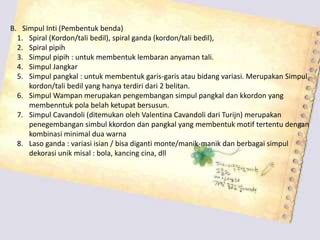 B. Simpul Inti (Pembentuk benda)
1. Spiral (Kordon/tali bedil), spiral ganda (kordon/tali bedil),
2. Spiral pipih
3. Simpul pipih : untuk membentuk lembaran anyaman tali.
4. Simpul Jangkar
5. Simpul pangkal : untuk membentuk garis-garis atau bidang variasi. Merupakan Simpul
kordon/tali bedil yang hanya terdiri dari 2 belitan.
6. Simpul Wampan merupakan pengembangan simpul pangkal dan kkordon yang
membenntuk pola belah ketupat bersusun.
7. Simpul Cavandoli (ditemukan oleh Valentina Cavandoli dari Turijn) merupakan
penegembangan simbul kkordon dan pangkal yang membentuk motif tertentu dengan
kombinasi minimal dua warna
8. Laso ganda : variasi isian / bisa diganti monte/manik-manik dan berbagai simpul
dekorasi unik misal : bola, kancing cina, dll